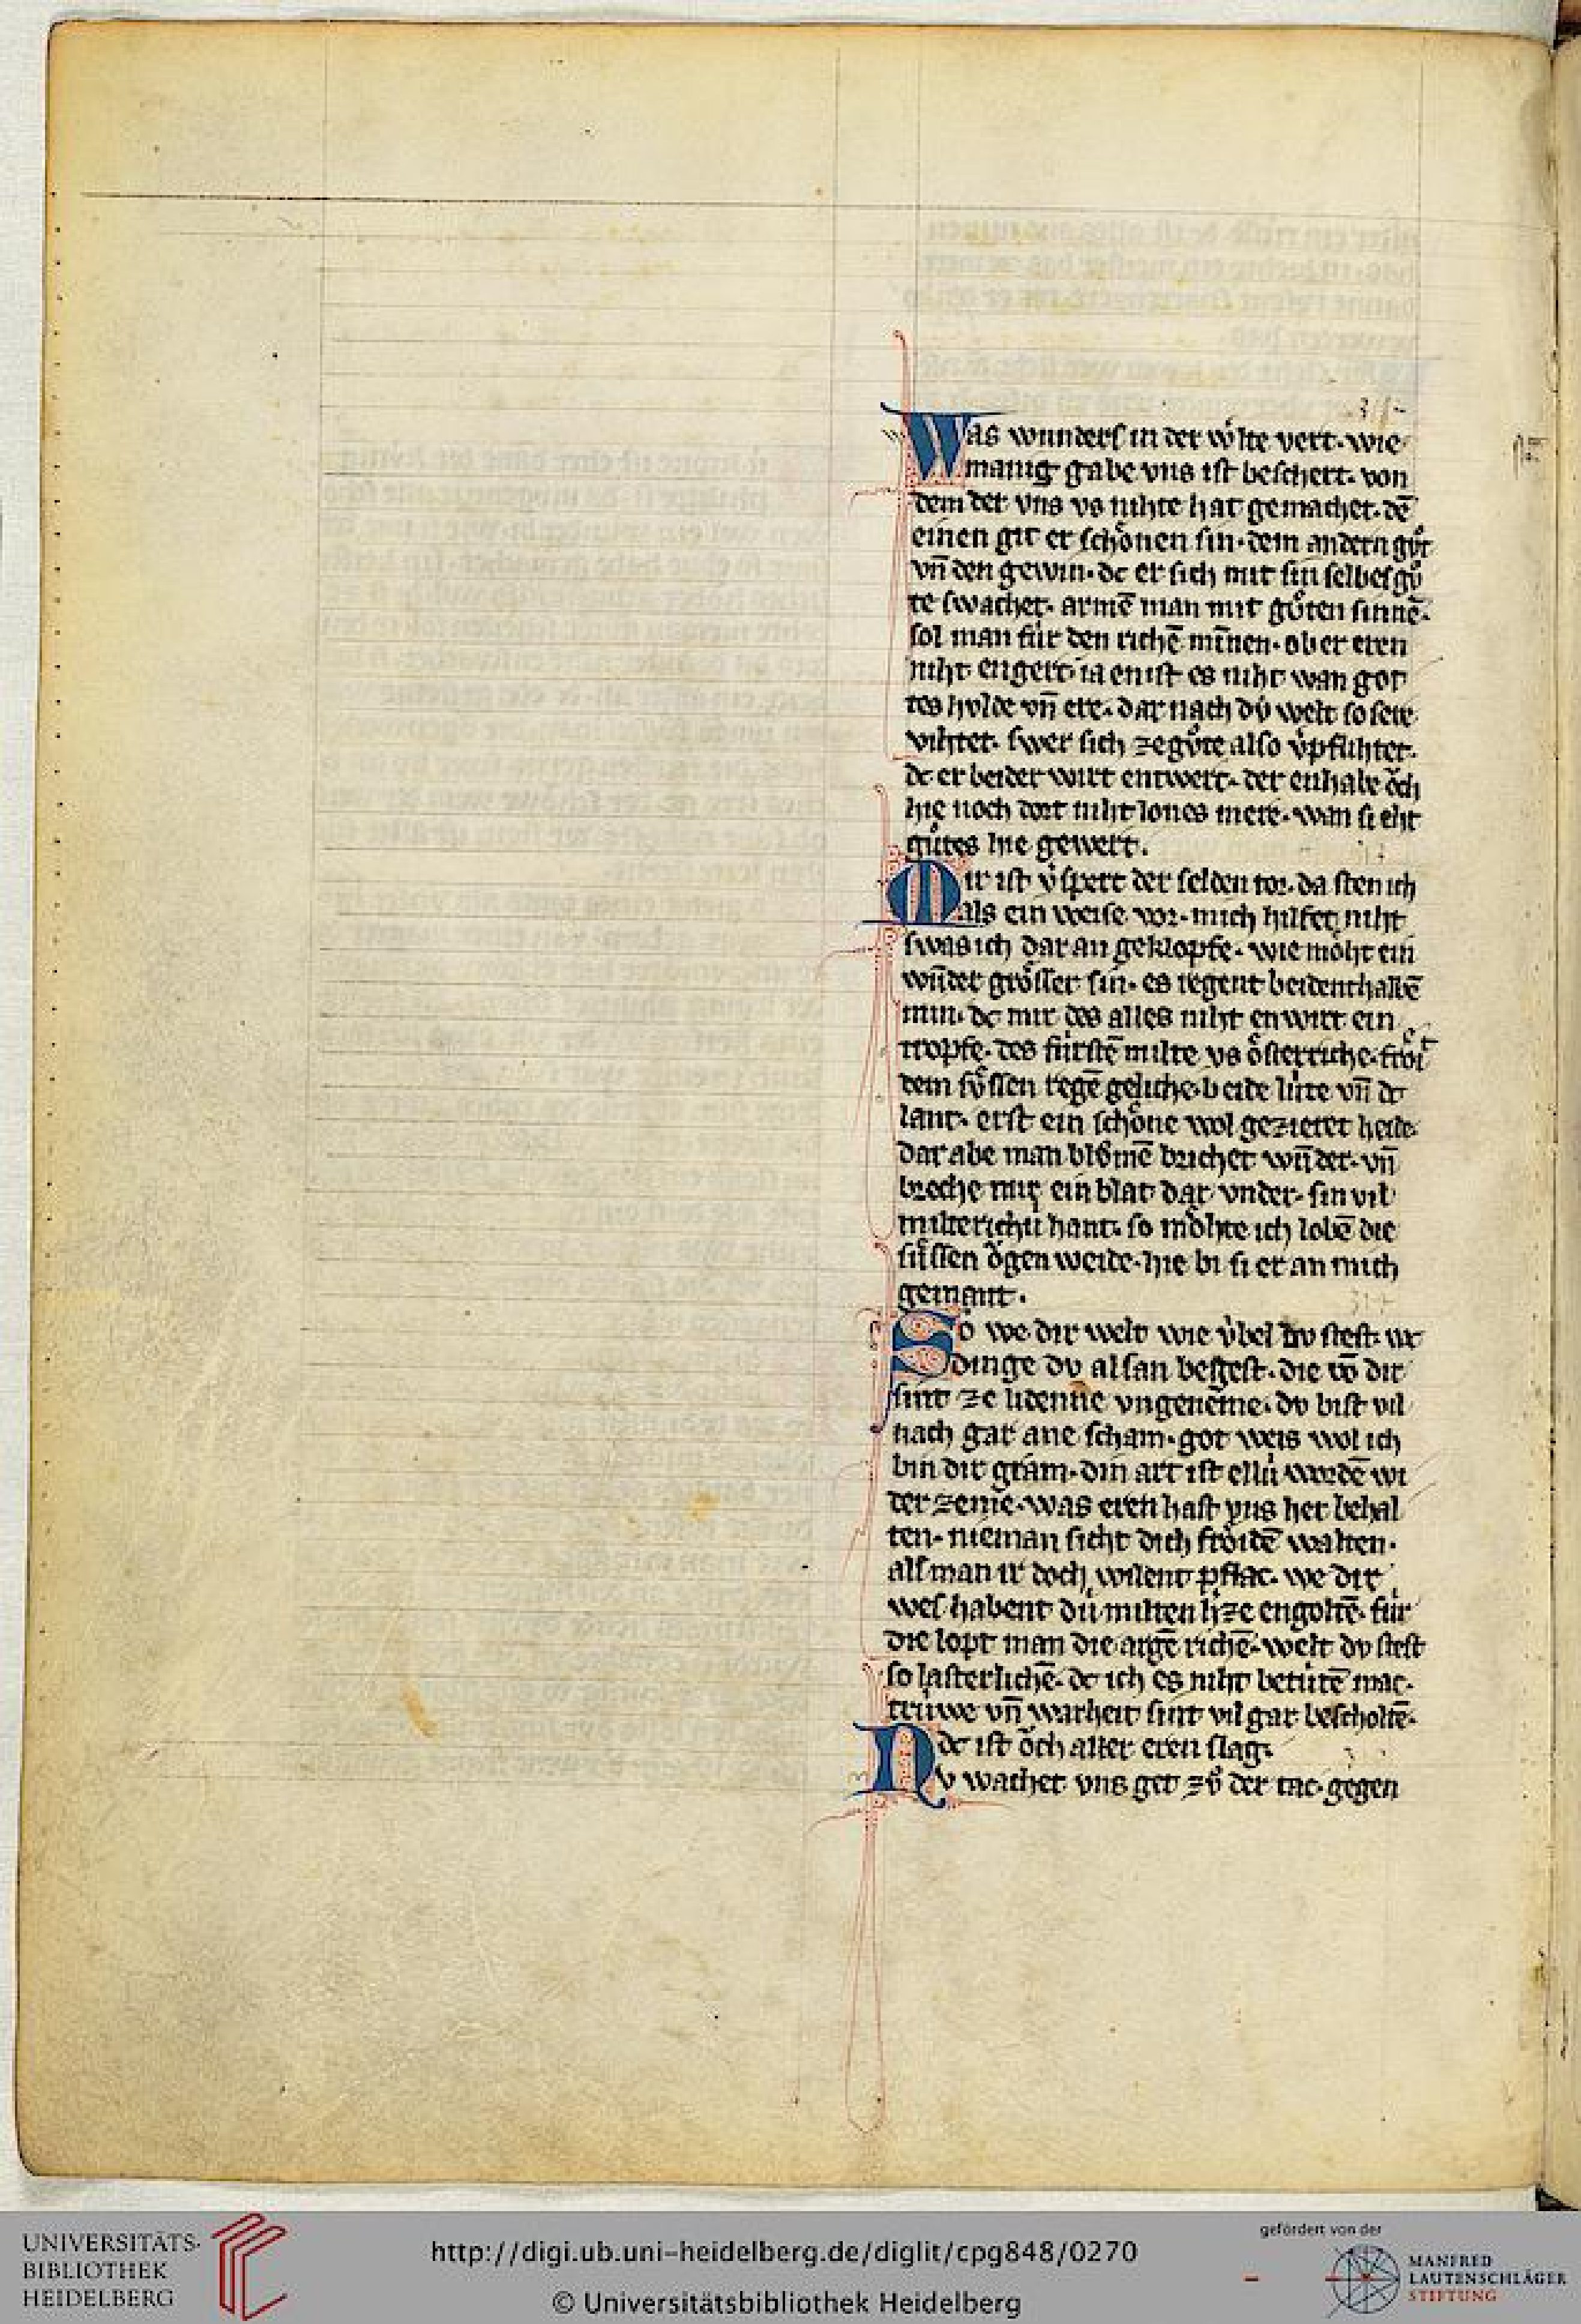 Was wunders in der wͤlte vert. wie
manig gabe vns ist beschert. von
dem der vns vs nihte hat gemachet. dē
einen git er schoͤnen sin. dem andern gvͦt
vn̄ den gewin. dc er sich mit sin selbes gvͦ
te swachet. armē man mit gvͦten sinnē.
sol man fúr den richē minnen. ob er eren
niht engert. ia enist es niht wan got
tes hulde vn̄ ere. dar nach dú welt so sere
vihtet. swer sich ze gvͦte also v̓pflihtet.
dc er beider wirt entwert. der enhabe oͮch
hie noch dort niht lones mere. wan si eht
gvͦtes hie gewert.
Mir ist v̓spert der selden tor. da sten ich
als ein weise vor. mich hilfet niht
swas ich dar an geklopfe. wie moͤht ein
wund̓er groͤsser sin. es regent beidenthalbē
min. dc mir des alles niht enwirt ein
tropfe. des fúrstē milte vs oͤsterriche. froͤit
dem svͤssen regē geliche. beide lúte vn̄ dc
lant. erst ein schoͤne wol gezieret heide.
dar abe man blvͦmē brichet wunder. vn̄
breche mir ein blat dar vnder. sin vil
milte richú hant. so moͤhte ich lobē die
svͤssen oͮgen weide. hie bi si er an mich
gemant.
So we dir welt wie v́bel dv stest. wc
dinge dv alsan begest. die vō dir
sint ze lidenne vngenēme. dv bist vil
nach gar ane scham. got weis wol ich
bin dir gram. din art ist ellú wordē wi
der zeme. was eren hast vns her behal
ten. nieman siht dich froͤidē walten.
als man ir doch wilent pflac. we dir
wes habent dú milten h̓ze engoltē. fúr
die lopt man die argē richē. welt dv stest
so lasterlichē. dc ich es niht betútē mac.
trúwe vn̄ warheit sint vil gar bescholtē.
dc ist oͮch aller eren slag.
Nv wachet vns get zvͦ der tac. gegen
UNIVERSITÄTS-
BIBLIOTHEK
HEIDELBERG
http://digi.ub.uni-heidelberg.de/diglit/cpg848/0270
© Universitätsbibliothek Heidelberg
gefördert von der
MANFRED
LAUTENSCHLÄGER
STIFTUNG